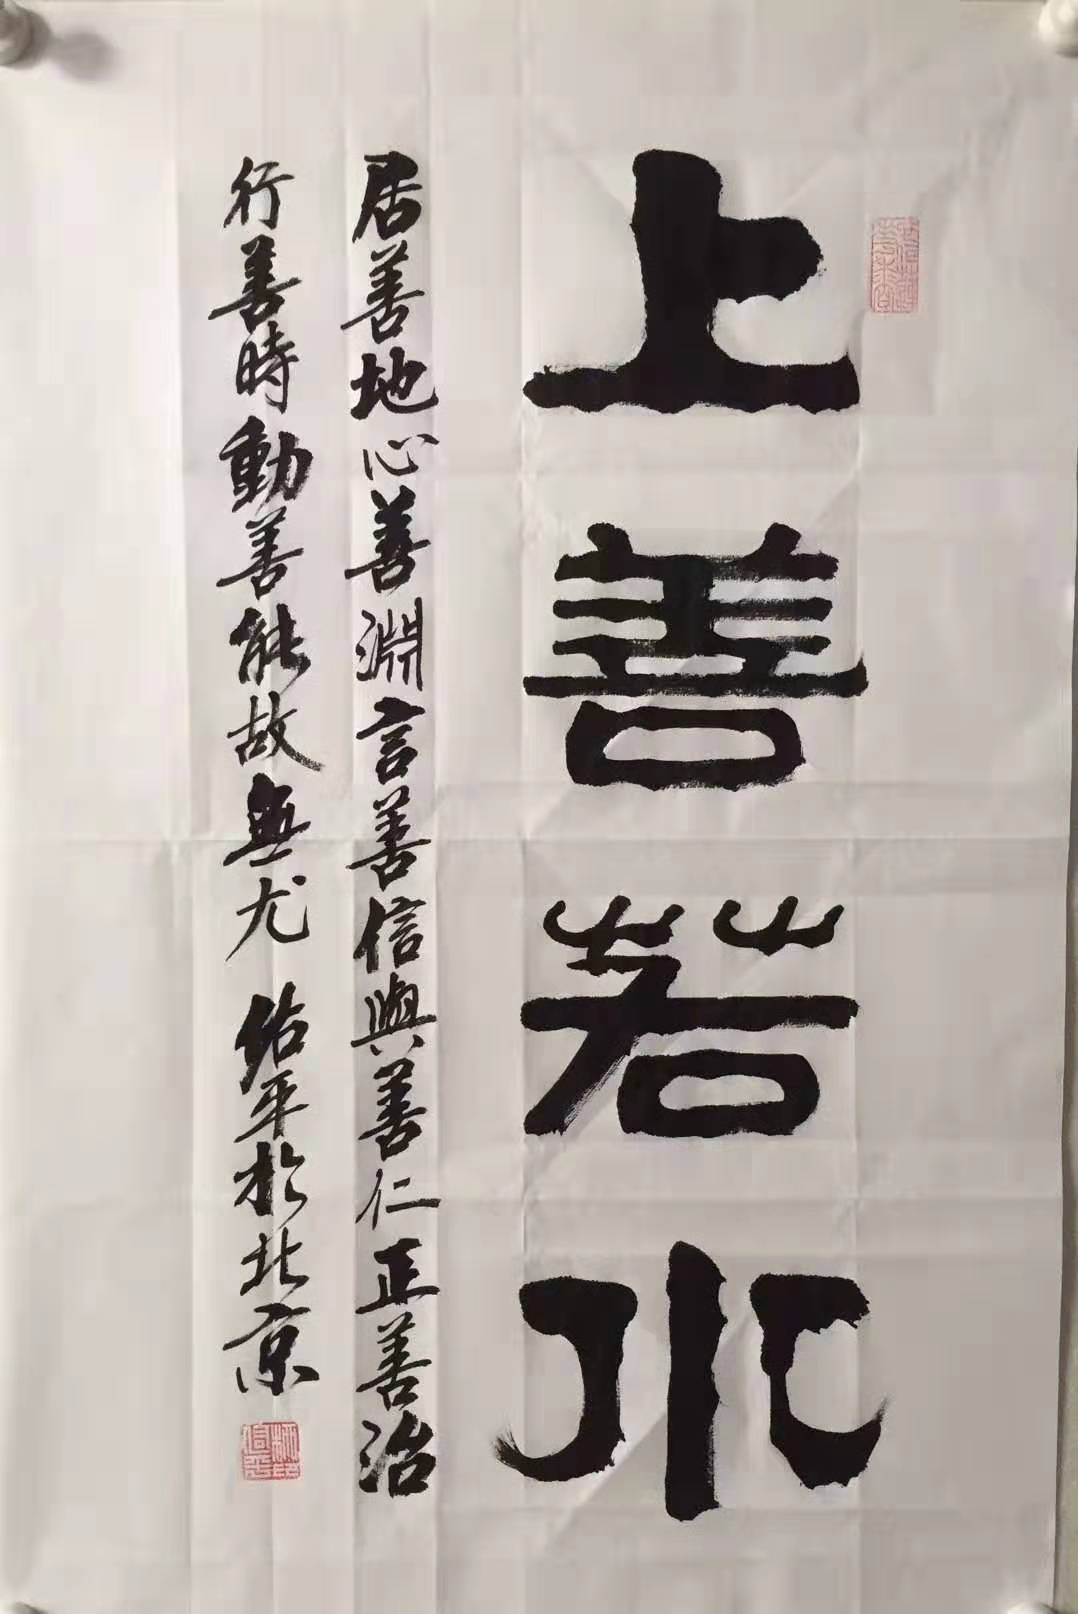 上善若水
居善地心善淵言善信與善仁正善治
行善時動善能故無尤 佑平於北京